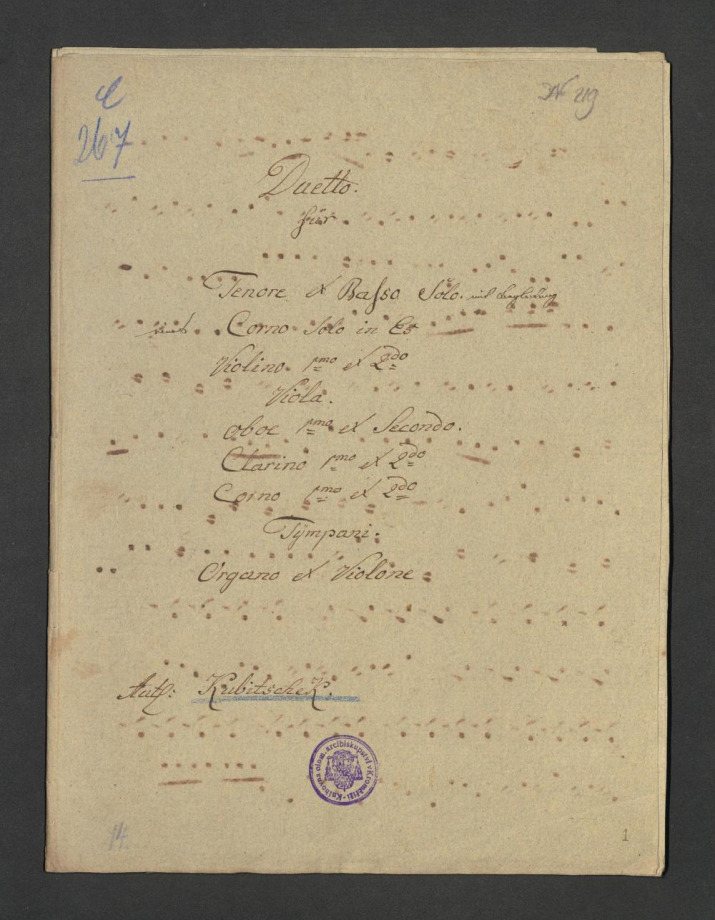 C
267
№ 219
Duetto.
für
Tenore et Basso Solo. mit Begleitung
Corno Solo in Es
Violino 1mo et 2do
Viola.
oboe 1mo et Secondo.
Clarino 1mo et 2do
Corno 1mo et 2do
Tÿmpani.
Organo et Violone
Auth: Kubitschek.
Knihovna olom. arcibiskupství v Kroměříži
14
1